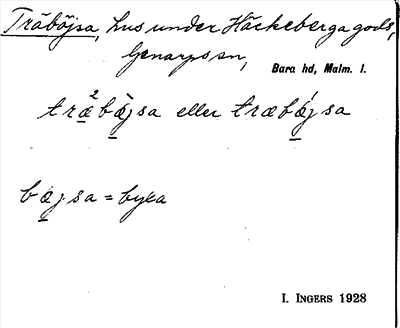 Träböjsa, hus under Häckeberga gods,
Genarps sn,
Bara hd, Malm. l.
træ²bø̀jsa eller træbǿjsa
bøjsa = byxa
I. INGERS 1928